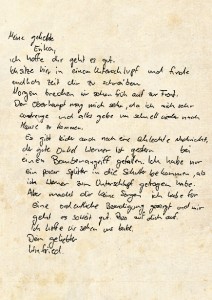 Meine geliebte
Erika,
ich hoffe dir geht es gut.
Ich sitze hier in einem Unterschlupf und finde
endlich Zeit dir zu schreiben.
Morgen brechen wir schon früh auf zur Front.
Der Oberhaupt mag mich sehr, da ich mich sehr
anstrenge und alles gebe um schnell wieder nach
Hause zu kommen.
Es gibt leider auch noch eine schlechte Nachricht,
der gute Onkel Werner ist gestern bei
einem Bombenangriff gefallen. Ich habe nur
ein paar Splitter in die Schulter bekommen, als
ich Werner zum Unterschlupf getragen habe.
Aber mach dir keine Sorgen ich habe für
eine ordentliche Beerdigung gesorgt und mir
geht es soweit gut. Pass auf dich auf.
Ich hoffe wir sehen uns bald.
Dein geliebter
Winfried